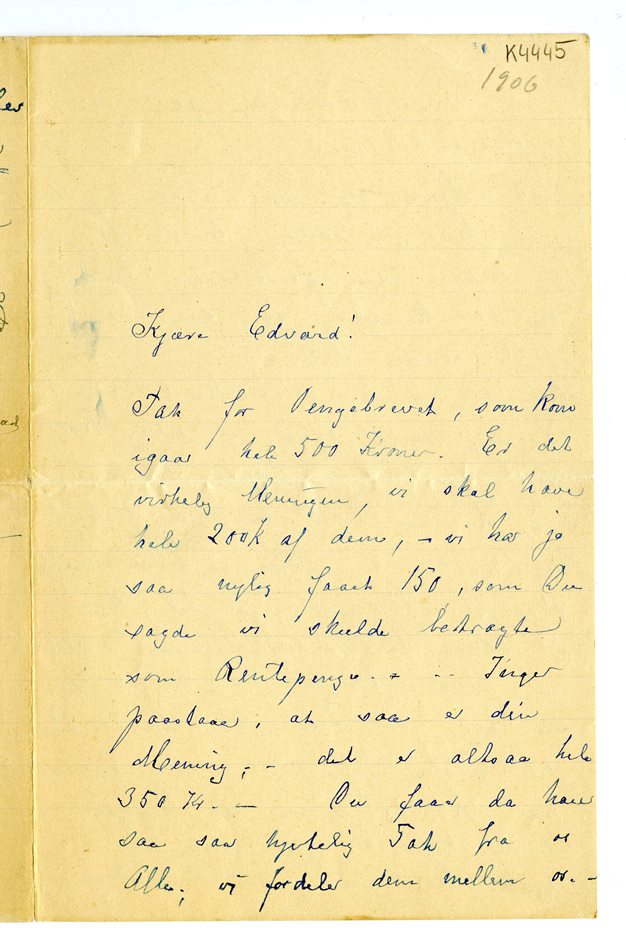 K4445
1906
Kjære Edvard!
Tak for Pengebrevet, som kom
igaar hele 500 Kroner. Er det
virkelig Meningen, vi skal have
hele 200K af dem, – vi har jo
saa nylig faaet 150, som Du
sagde vi skulde betragte
som Rentepenge. – – Inger
paastaaer, at saa er din
Mening; – det er altsaa hele
350 K. – Du faar da have
saa saa hjertelig Tak fra os
Alle; vi fordeler dem mellem os. –